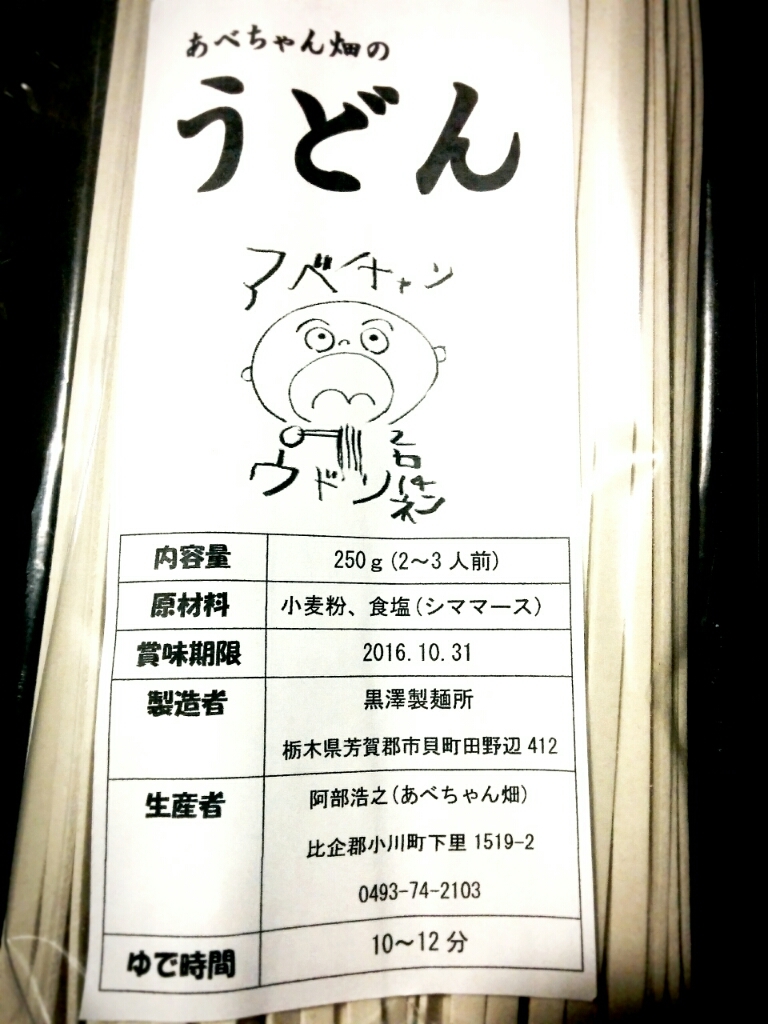 あべちゃん畑の
うどん
アベチャン
ウドン
内容量 250g(2～3人前)
原材料 小麦粉、食塩(シママース)
賞味期限 2016.10.31
製造者 黒澤製麺所
栃木県芳賀郡市貝町田野辺412
生産者 阿部浩之(あべちゃん畑)
比企郡小川町下里1519-2
0493-74-2103
ゆで時間 10～12分